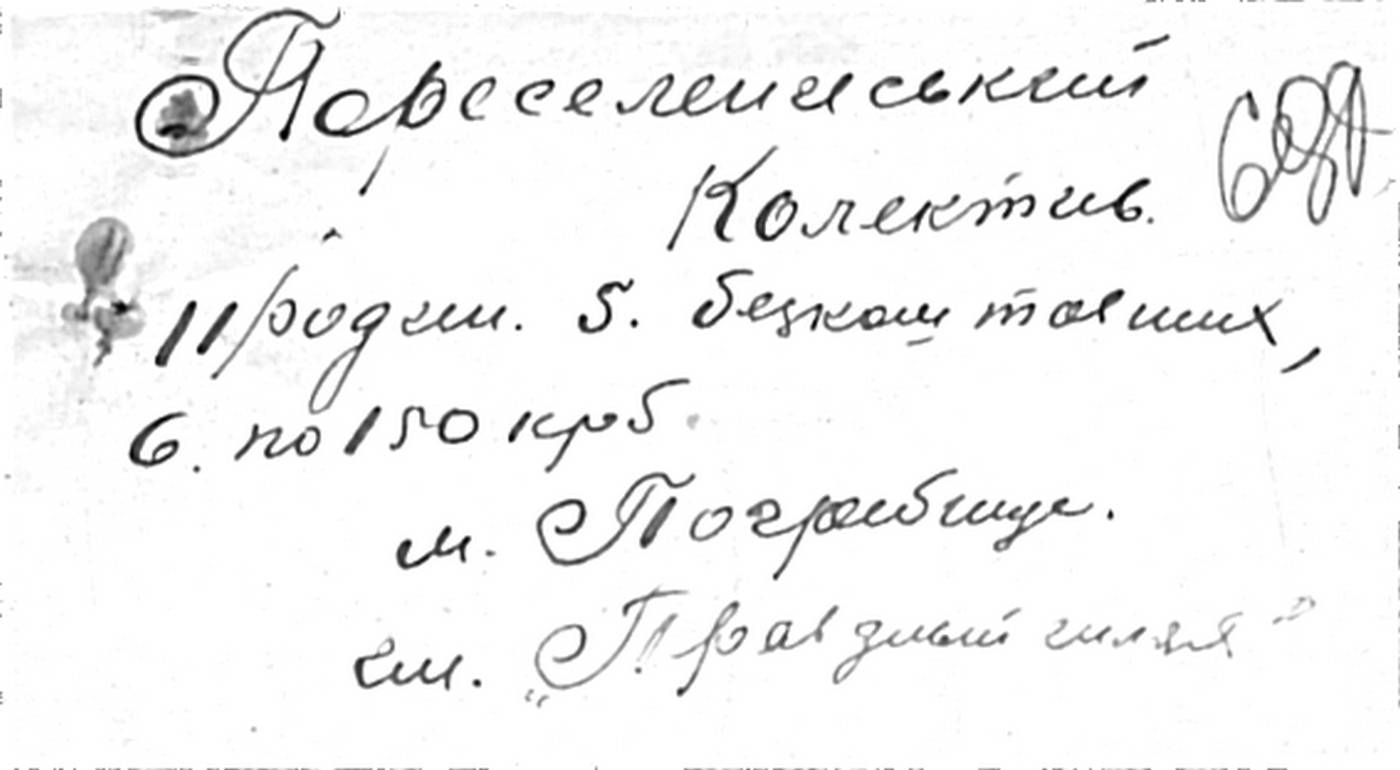 Переселенський
Колектив.
11 родин. 5. безкоштовних,
6. по 150 крб.
м. Погребище.
ім. „Правдивий шлях"